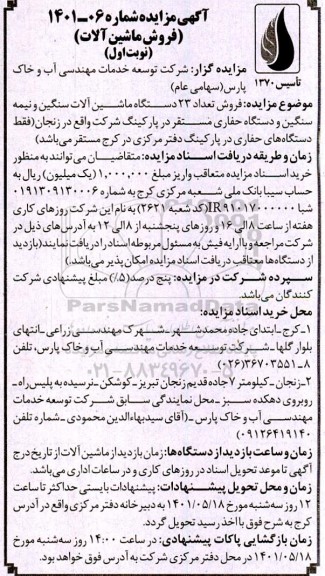 آگهی مزایده شماره ۰۶-۱۴۰۱
(فروش ماشین آلات)
(نوبت اول)
تاسیس ۱۳۷۰
مزایده گزار: شرکت توسعه خدمات مهندسی آب و خاک
پارس(سهامی عام)
موضوع مزایده: فروش تعداد ۲۳ دستگاه ماشین آلات سنگین و نیمه
سنگین و دستگاه حفاری مستقر در پارکینگ شرکت واقع در زنجان(فقط
دستگاه‌های حفاری در پارکینگ دفتر مرکزی در کرج مستقر می‌باشد)
زمان و طریقه دریافت اسناد مزایده: متقاضیان می‌توانند به منظور
خرید اسناد مزایده متعاقب واریز مبلغ ۱,۰۰۰,۰۰۰ (یک میلیون) ریال به
حساب سیبا بانک ملی شعبه مرکزی کرج به شماره ۰۱۹۱۳۰۹۱۳۰۰۰۶
شبا IR۹۱۰۱۷۰۰۰۰۰۰۰ (کد شعبه ۲۶۲۱) به نام این شرکت روزهای کاری
هفته از ساعت ۸ الی ۱۶ و روزهای پنجشنبه از ۸ الی ۱۲ به آدرس‌های ذیل در
شرکت مراجعه و با ارایه فیش به مسئول مربوطه اسناد را دریافت نمایند(بازدید
از دستگاه‌ها متعاقب دریافت اسناد مزایده امکان پذیر می‌باشد.)
سپرده شرکت در مزایده: پنج درصد(۵٪) مبلغ پیشنهادی شرکت
کنندگان می‌باشد.
محل خرید اسناد مزایده:
۱-کرج-ابتدای جاده محمدشهر-شهرک مهندسی زراعی-انتهای
بلوار گلها-شرکت توسعه خدمات مهندسی آب و خاک پارس، تلفن
۸-۳۶۷۰۳۵۵۱(۰۲۶)
۲-زنجان-کیلومتر ۷ جاده قدیم زنجان تبریز-کوشکن-نرسیده به پلیس راه-
روبروی دهکده سبز-محل نمایندگی سابق شرکت توسعه خدمات
مهندسی آب و خاک پارس-(آقای سید بهاءالدین محمودی-شماره تلفن
۰۹۱۲۶۴۱۹۱۴۰)
زمان و ساعت بازدید از دستگاه‌ها: زمان بازدید از ماشین آلات از تاریخ درج
آگهی تا موعد تحویل اسناد در روزهای کاری و در ساعات اداری می‌باشد.
زمان و محل تحویل پیشنهادات: پیشنهادات بایستی حداکثر تا ساعت
۱۲ روز سه‌شنبه مورخ ۱۴۰۱/۰۵/۱۸ به دبیرخانه دفتر مرکزی واقع در آدرس
کرج به شرح فوق با اخذ رسید تحویل گردد.
زمان بازگشایی پاکات پیشنهادی: در ساعت ۱۴:۰۰ روز سه‌شنبه مورخ
۱۴۰۱/۰۵/۱۸ در محل دفتر مرکزی شرکت به آدرس فوق خواهد بود.
ParsNamadData
۰۲۱-۸۸۳۴۹۶۷۰-۵